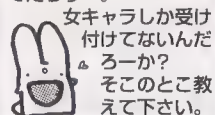 女キャラしか受け
付けてないんだ
ろーか?
そこのとこ教
えて下さい。